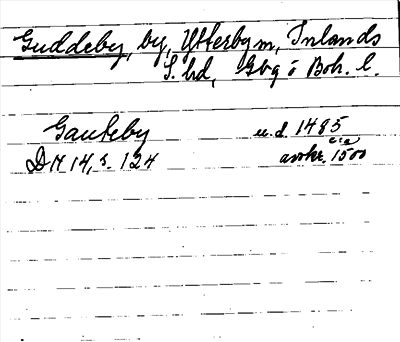 Guddeby, by, Ytterby sn, Inlands
S. hd, Gbg o Boh. l.
Gauteby u.d. 1485
DN 14, s. 124 avskr. ca 1500